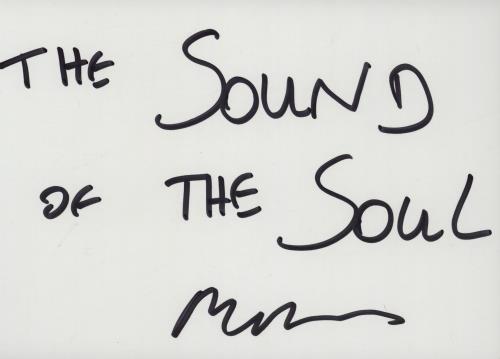 THE SOUND
OF THE SOUL